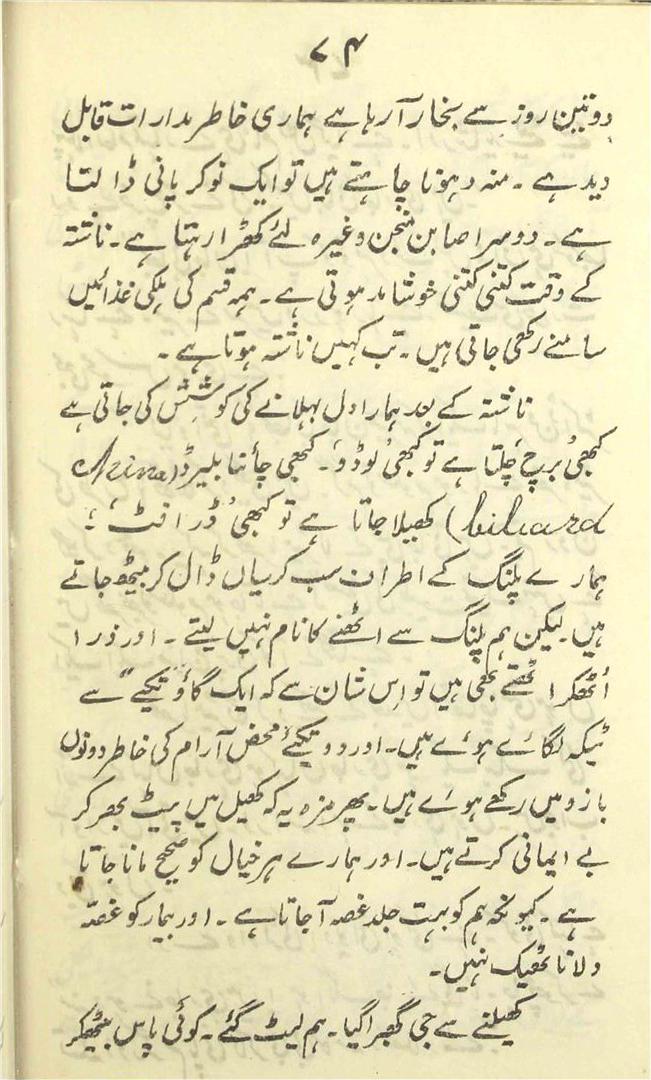 ۷۴
دو تین روز سے بخار آ رہا ہے ہماری خاطر مدارات قابل
دید ہے ۔ منہ دھونا چاہتے ہیں تو ایک نوکر پانی ڈالتا
ہے ۔ دوسرا صابن منجن وغیرہ لئے کھڑا رہتا ہے ۔ ناشتہ
کے وقت کتنی کتنی خوشامد ہوتی ہے ۔ ہمہ قسم کی ہلکی غذائیں
سامنے رکھی جاتی ہیں ۔ تب کہیں ناشتہ ہوتا ہے ۔
ناشتہ کے بعد ہمارا دل بہلانے کی کوشش کی جاتی ہے
کبھی ’برج‘ چلتا ہے تو کبھی ’لوڈو‘ ۔ کبھی چائنا بلیرڈ (China
biliard) کھیلا جاتا ہے تو کبھی ’ڈرافٹ‘ ؛
ہمارے پلنگ کے اطراف سب کرسیاں ڈال کر بیٹھ جاتے
ہیں ۔ لیکن ہم پلنگ سے اٹھنے کا نام نہیں لیتے ۔ اور ذرا
اُٹھکر اٹھتے بھی ہیں تو اِس شان سے کہ ایک گاؤ تکیے” سے
ٹیکہ لگائے ہوئے ہیں ۔ اور دو تکیئے محض آرام کی خاطر دونوں
بازو میں رکھے ہوئے ہیں ۔ پھر مزہ یہ کہ کھیل میں پیٹ بھر کر
بے ایمانی کرتے ہیں ۔ اور ہمارے ہر خیال کو صحیح مانا جاتا
ہے ۔ کیونکہ ہم کو بہت جلد غصہ آ جاتا ہے ۔ اور بیمار کو غصّہ
دلانا ٹھیک نہیں ۔
کھیلنے سے جی گھبرا گیا ۔ ہم لیٹ گئے ۔ کوئی پاس بیٹھکر